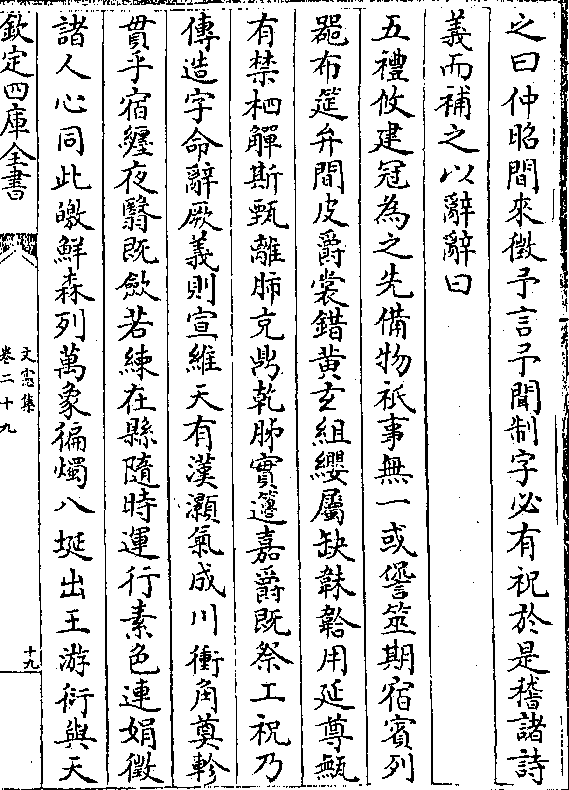 之曰仲昭間來徴予言予聞制字必有祝於是稽諸詩
義而補之以辭辭曰
五禮攸建冠為之先備物祇事無一或諐筮期宿賓列
器布筵弁間皮爵裳錯黄玄組纓屬缺韎韐用延尊甒
有禁柶觶斯甄離肺克鼎乾肺實籩嘉爵既祭工祝乃
傳造字命辭厥義則宣維天有漢灝氣成川衝角奠軫
貫乎宿纏夜翳既斂若練在縣隨時運行素色連娟徵
諸人心同此皦鮮森列萬象徧燭八埏出王游衍與天
欽定四庫全書
文憲集
卷二十九
十九